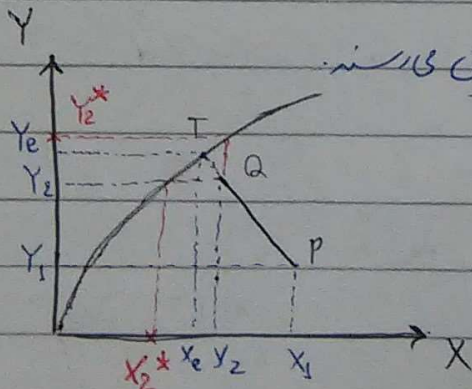 Y
می‌رسند.
Y₂*
Ye
T
Q
Y₂
P
Y₁
X₂*
Xe
y₂
X₁
X